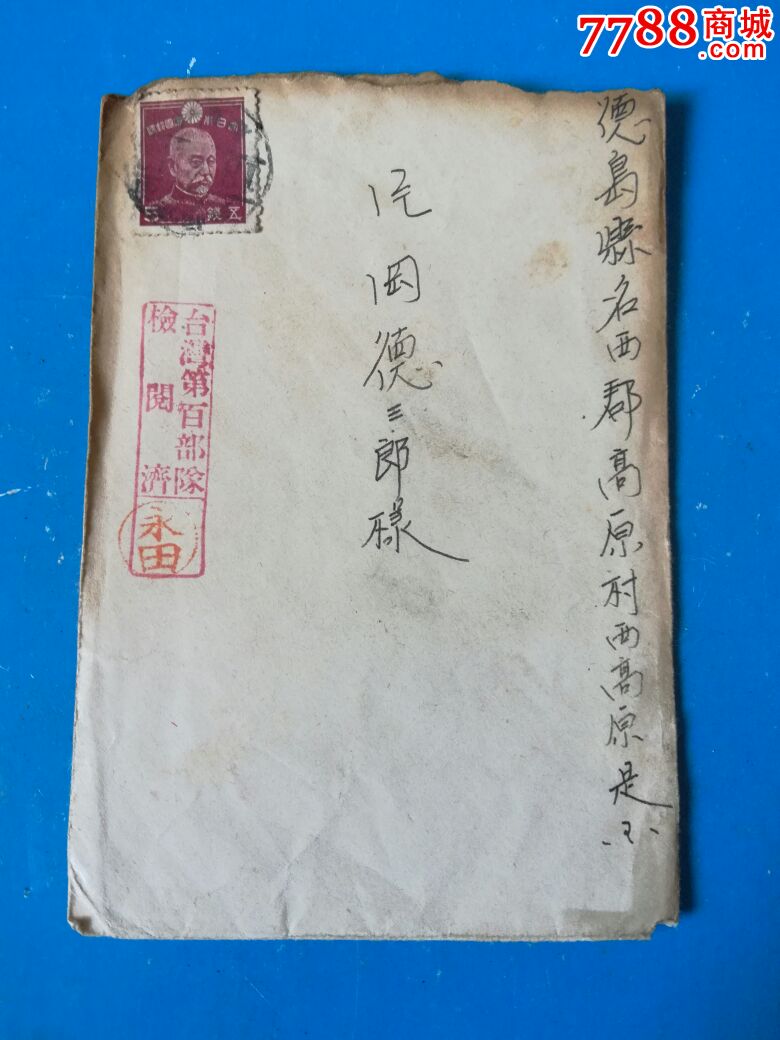 7788商城
.com
德島縣名西郡高原村西高原是
片岡德三郎様
大日本帝國郵便
五錢
5
台灣第百部隊
檢閲濟
永田